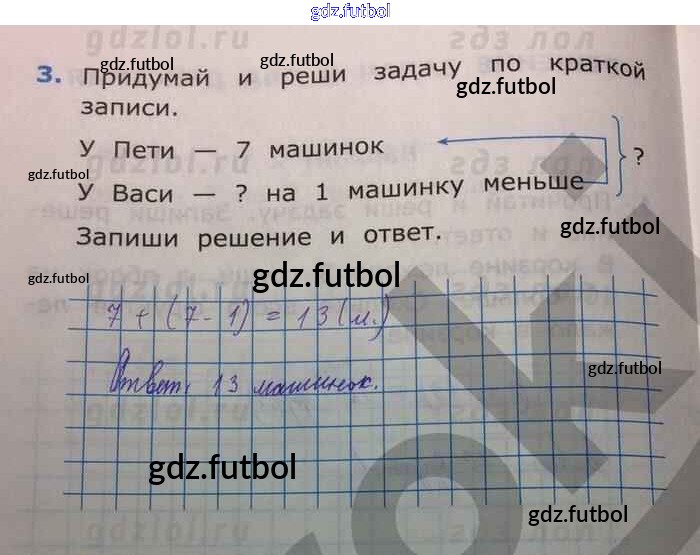 gdz.futbol
gdzlol.ru
gdz.futbol
3. Придумай и реши задачу по краткой
gdz.futbol
gdz.futbol
записи.
У Пети — 7 машинок
gdz.futbol
У Васи — ? на 1 машинку меньше
?
gdz.futbol
Запиши решение и ответ.
gdz.futbol
gdz.futbol
7 + (7 - 1) = 13 (м.)
Ответ: 13 машинок.
gdz.futbol
gdz.futbol
gdz.futbol